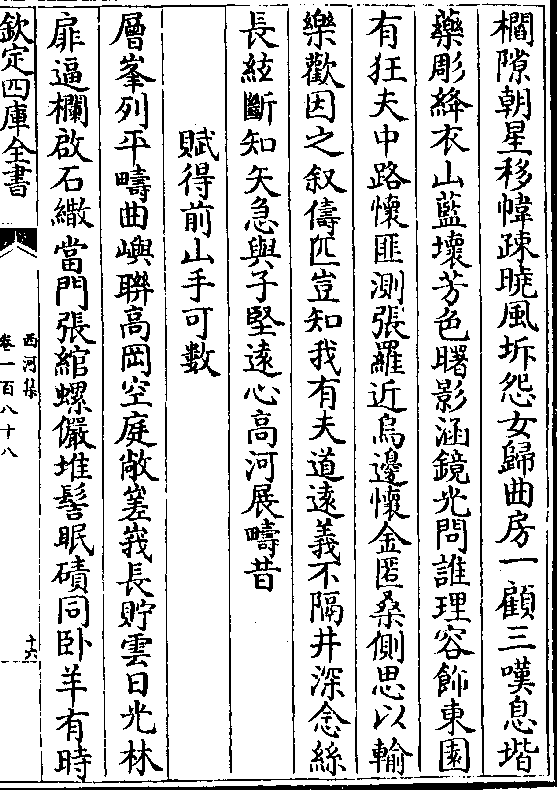 櫩隙朝星移幃疎曉風坼怨女歸曲房一顧三嘆息堦
藥彫絳衣山藍壞芳色曙影涵鏡光問誰理容飾東園
有狂夫中路懷匪測張羅近烏邊懷金匿桑側思以輸
樂歡因之叙儔匹豈知我有夫道遠義不隔井深念絲
長絃斷知矢急與子堅遠心高河展疇昔
賦得前山手可數
層峯列平疇曲嶼聯高岡空庭敞嵳峩長貯雲日光林
扉逼欄啟石繖當門張綰螺儼堆髻眠磧同卧羊有時
欽定四庫全書
西河集
卷一百八十八
十六